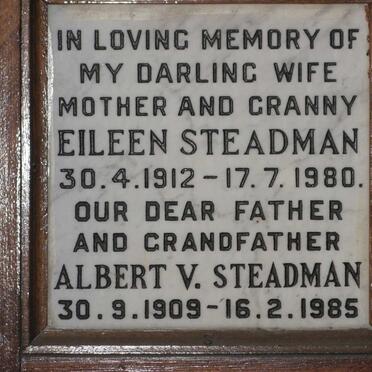 IN LOVING MEMORY OF
MY DARLING WIFE
MOTHER AND GRANNY
EILEEN STEADMAN
30.4.1912 - 17.7.1980.
OUR DEAR FATHER
AND GRANDFATHER
ALBERT V. STEADMAN
30.9.1909-16.2.1985